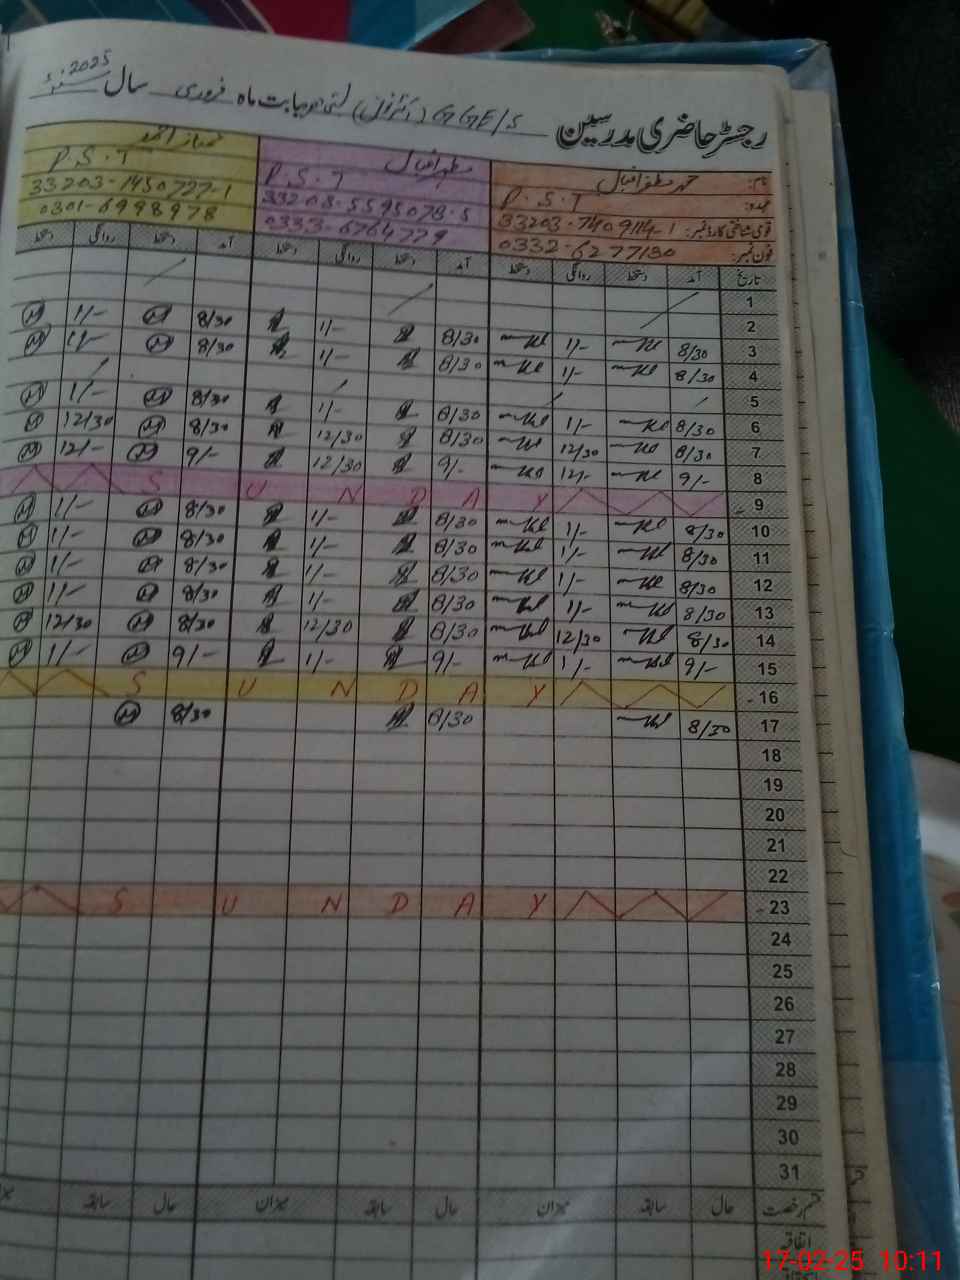 رجسٹر حاضری مدرسین GGE/S بابت ماہ فروری سال 2025
نام: مظفر اقبال مظہر اقبال ممتاز احمد
عہدہ: P.S.T P.S.T P.S.T
قومی شناختی کارڈ نمبر: 33203-7409114-1 33203-5595078-5 33203-1450727-1
فون نمبر: 0332-6277130 0333-6764779 0301-6998978
تاریخ آمد دستخط روانگی دستخط آمد دستخط روانگی دستخط آمد دستخط روانگی دستخط
1
2
3 8/30 1/- 8/30 1/- 8/30 1/-
4 8/30 1/- 8/30 1/- 8/30 1/-
5
6 8/30 1/- 8/30 1/- 8/30 1/-
7 8/30 12/30 8/30 12/30 8/30 12/30
8 9/- 12/- 9/- 12/30 9/- 12/-
9 S U N D A Y
10 8/30 1/- 8/30 1/- 8/30 1/-
11 8/30 1/- 8/30 1/- 8/30 1/-
12 8/30 1/- 8/30 1/- 8/30 1/-
13 8/30 1/- 8/30 1/- 8/30 1/-
14 8/30 12/30 8/30 12/30 8/30 12/30
15 9/- 1/- 9/- 1/- 9/- 1/-
16 S U N D A Y
17 8/30 8/30 8/30
18
19
20
21
22
23 S U N D A Y
24
25
26
27
28
29
30
31
قسم رخصت حال سابقہ میزان حال سابقہ میزان حال سابقہ
اتفاقیہ
17-02-25 10:11